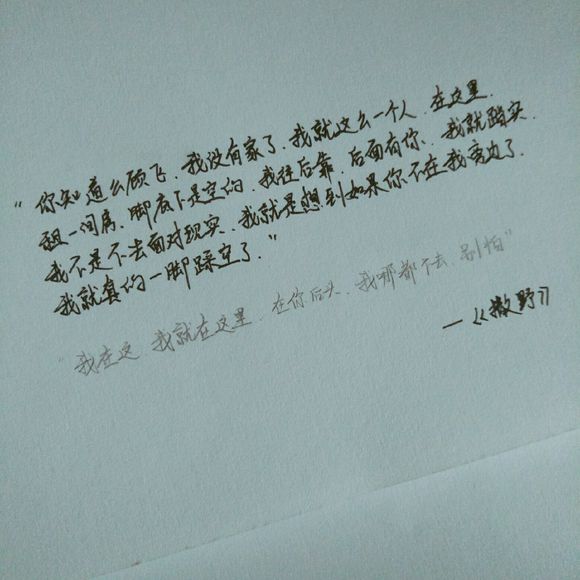 “你知道么顾飞，我没有家了，我就这么一个人，在这里，
租一间房，脚底下是空的，我往后靠，后面有你，我就踏实，
我不是不去面对现实，我就是想到如果你不在我旁边了，
我就真的一脚踩空了。”
“我在这，我就在这里，在你后头，我哪都不去，别怕”
—《撒野》